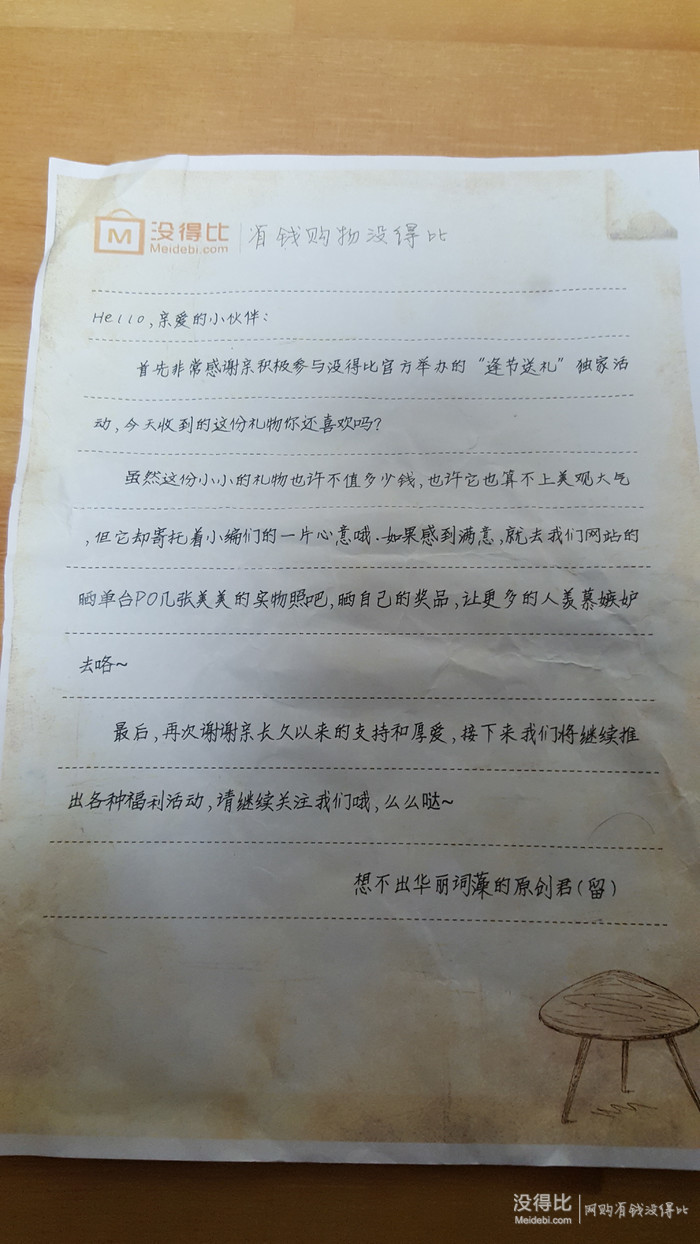 M 没得比 省钱购物没得比
Meidebi.com
Hello,亲爱的小伙伴:
首先非常感谢亲积极参与没得比官方举办的“逢节送礼”独家活
动,今天收到的这份礼物你还喜欢吗?
虽然这份小小的礼物也许不值多少钱,也许它也算不上美观大气
,但它却寄托着小编们的一片心意哦.如果感到满意,就去我们网站的
晒单台PO几张美美的实物照吧,晒自己的奖品,让更多的人羡慕嫉妒
去咯~
最后,再次谢谢亲长久以来的支持和厚爱,接下来我们将继续推
出各种福利活动,请继续关注我们哦,么么哒~
想不出华丽词藻的原创君(留)
没得比 网购省钱没得比
Meidebi.com